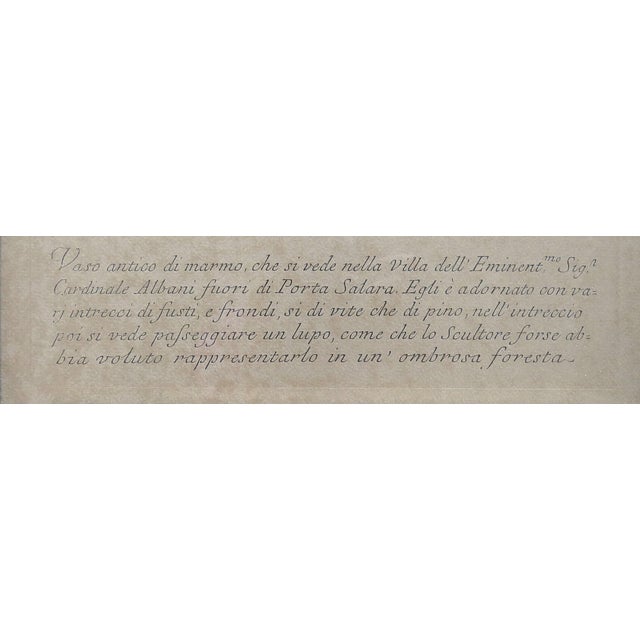 Vaso antico di marmo, che si vede nella Villa dell' Eminent.mo Sig.r
Cardinale Albani fuori di Porta Salara. Egli è adornato con va-
rj intrecci di fusti, e frondi, si di vite che di pino, nell'intreccio
poi si vede paſseggiare un lupo, come che lo Scultore forse ab-
bia voluto rappresentarlo in un' ombrosa foresta